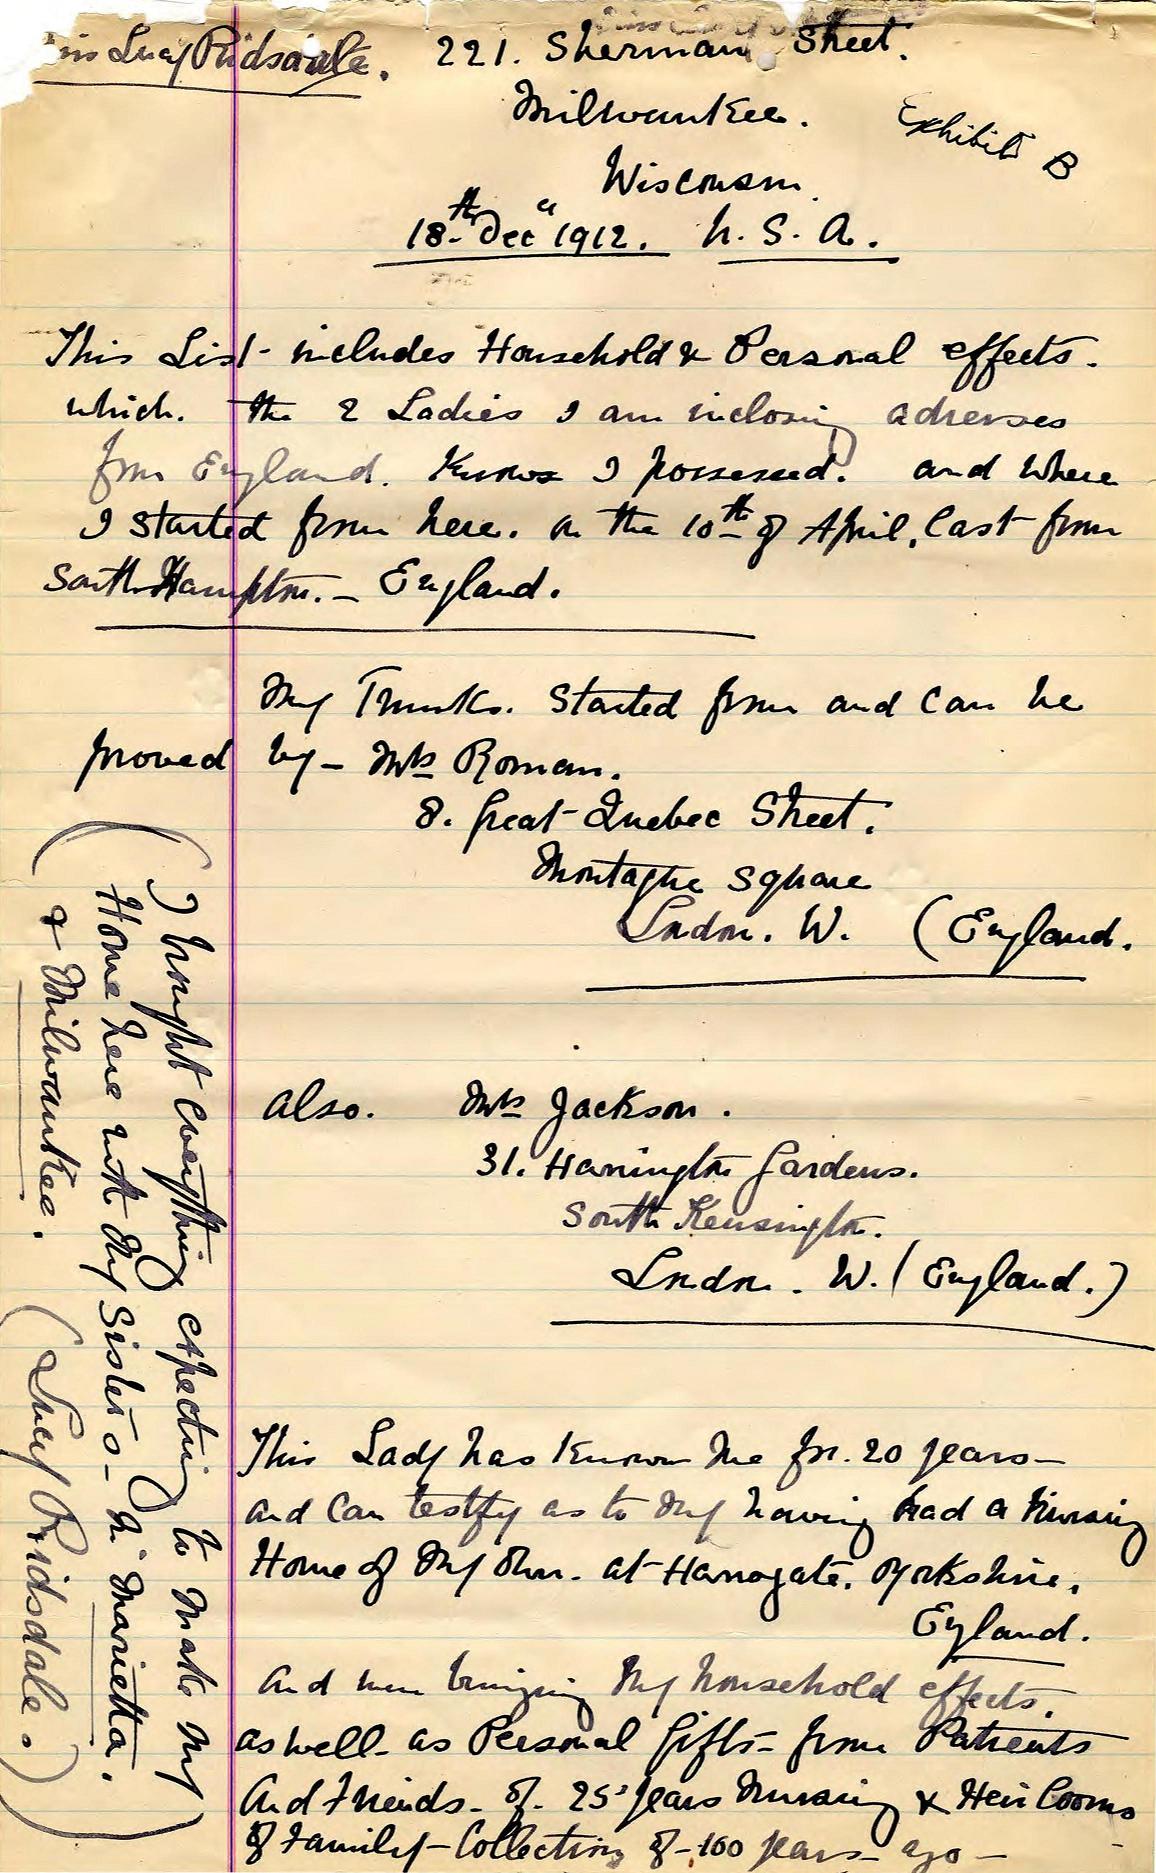 Lucy Ridsdale. 221. Sherman Street.
Milwaukee. Exhibit B
Wisconsin.
18th Decr 1912. U. S. A.
This List- includes Household & Personal effects-
which. the 2 Ladies I am inclosing adresses
from England. Knows I possessed. and where
I started from here. on the 10th of April, last from
South Hampton. - England.
My Trunks. Started from and can be
proved by - Mrs Roman.
8. Great- Quebec Street.
Montague Square
London. W. (England.
also. Mrs Jackson.
31. Harrington Gardens.
South Kensington.
London. W. (England.)
This Lady has Known Me for. 20 years-
and can testify as to My having had a Nursing
Home of My Own. at Harrogate. Yorkshire.
England.
And was bringing My household effects.
as well- as Personal Gifts- from Patients
And Friends- of- 25 years Nursing & Heir Looms
of Family- Collecting of- 100 years- ago-
(I brought everything expecting to make My
Home here with My Sisters- in Marietta.
& Milwaukee. (Lucy Ridsdale.)